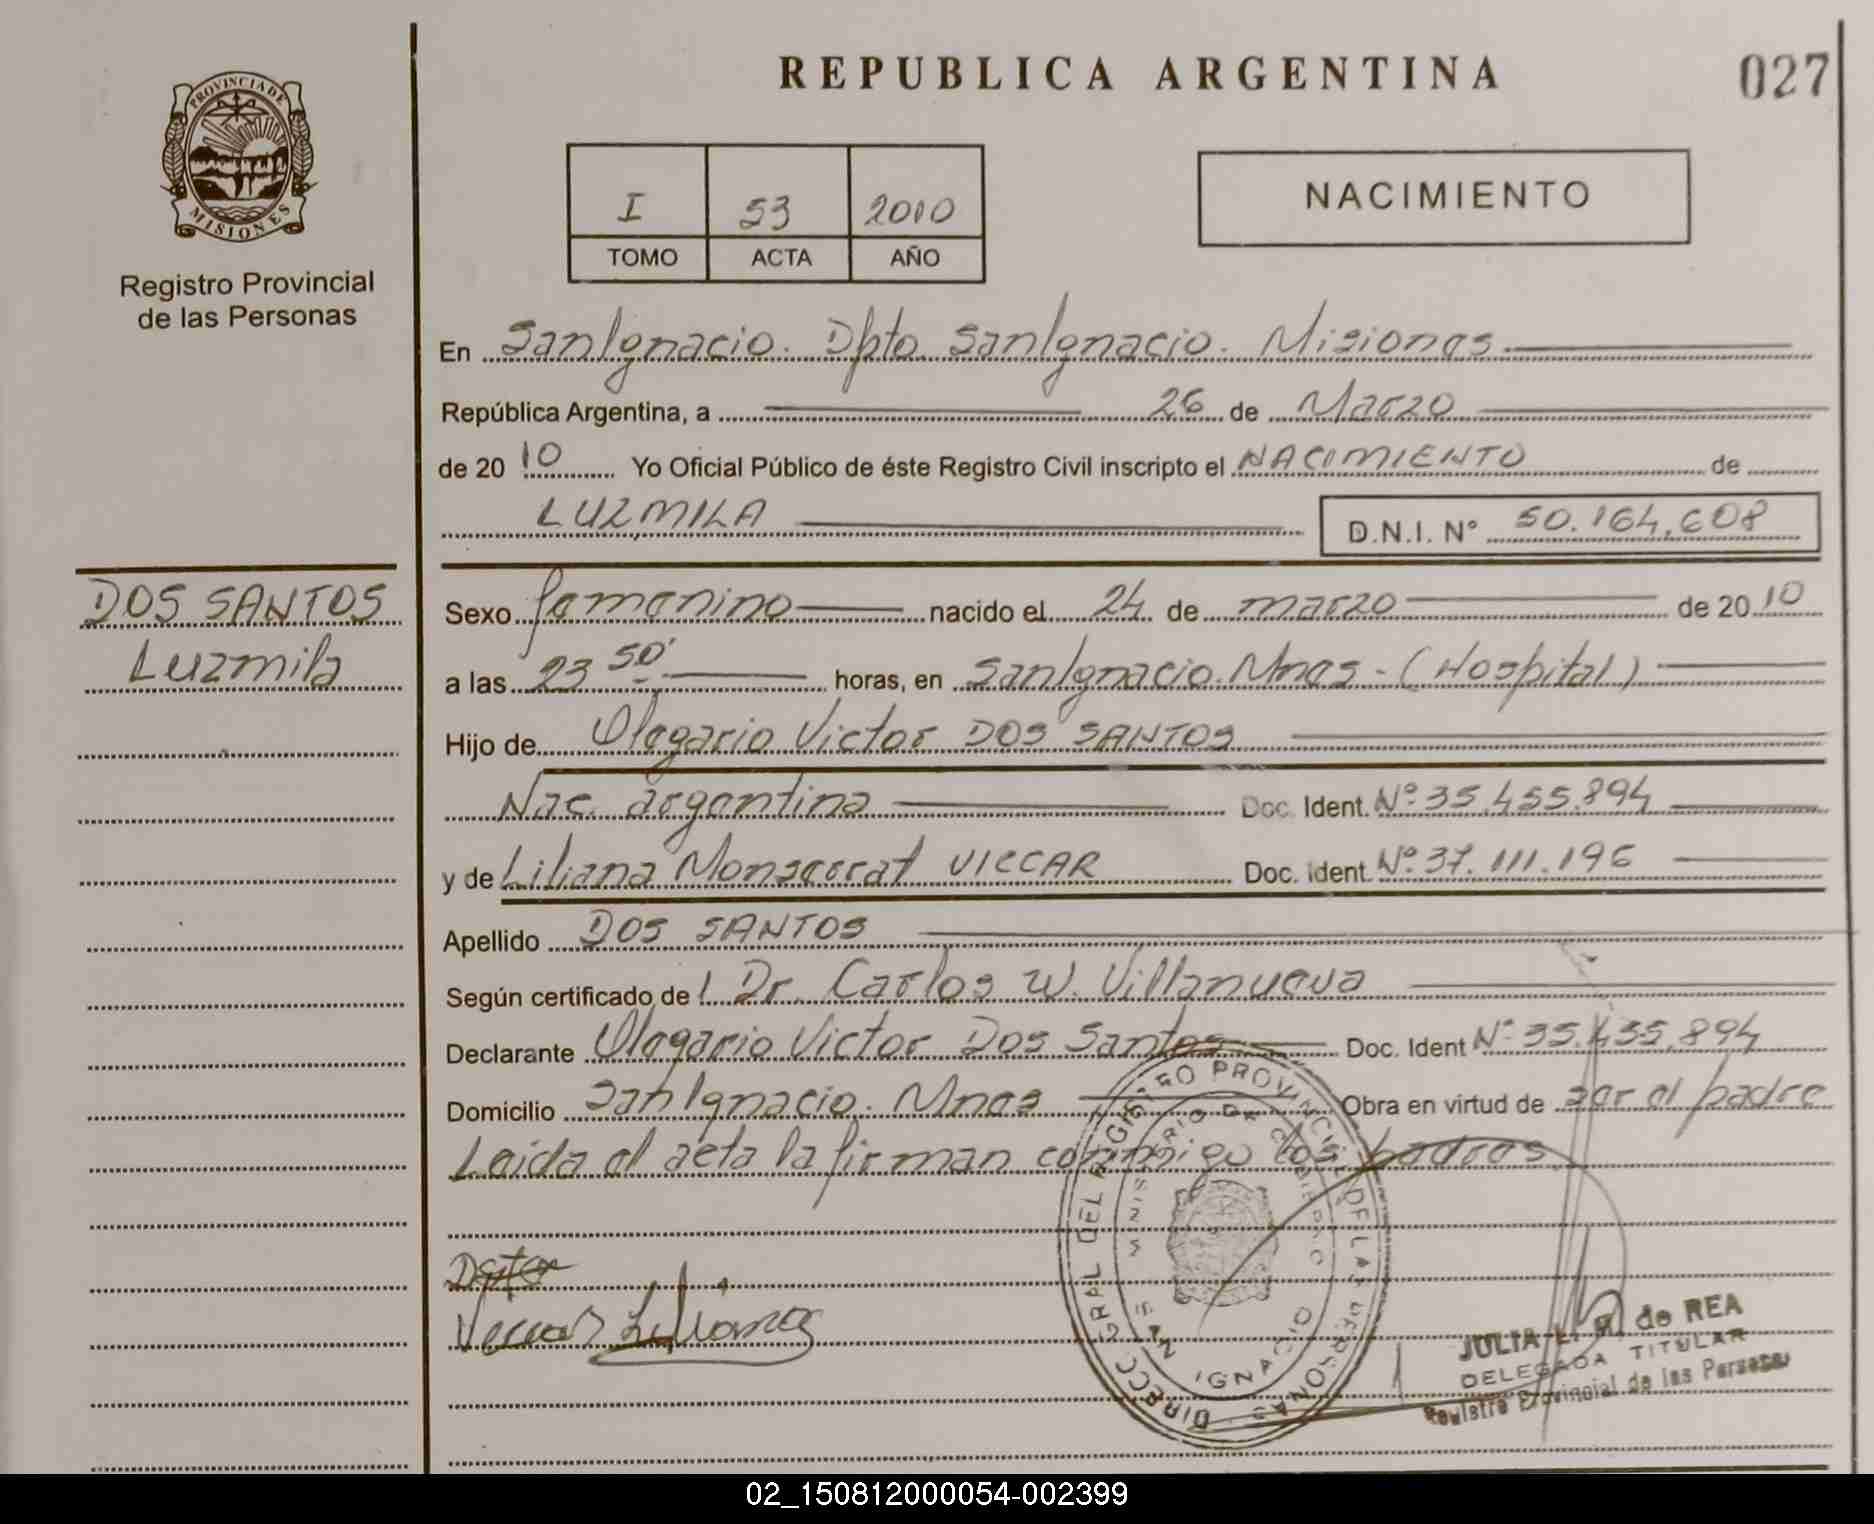 REPUBLICA ARGENTINA
027
PROVINCIA DE
MISIONES
Registro Provincial
de las Personas
I 53 2010
TOMO ACTA AÑO
NACIMIENTO
En San Ignacio. Dpto San Ignacio. Misiones
República Argentina, a 26 de Marzo
de 20 10 Yo Oficial Público de éste Registro Civil inscripto el NACIMIENTO de
LUZMILA D.N.I. Nº 50.164.608
DOS SANTOS
Luzmila
Sexo femenino nacido el 24 de marzo de 20 10
a las 23 50' horas, en San Ignacio. Mnes - (Hospital)
Hijo de Olegario Victor DOS SANTOS
Nac. argentina Doc. Ident. Nº 35.455.894
y de Liliana Monserrat VIECAR Doc. Ident. Nº 37.111.196
Apellido DOS SANTOS
Según certificado de l Dr. Carlos W. Villanueva
Declarante Olegario Victor Dos Santos Doc. Ident Nº 35.455.894
Domicilio San Ignacio. Mnes Obra en virtud de ser el padre
Leida el acta la firman conmigo los padres
DIRECC. GRAL DEL REGISTRO PROVINCIAL DE LAS PERSONAS
MINISTERIO DE GOBIERNO
SAN IGNACIO
Liliana
JULIA L. de REA
DELEGADA TITULAR
Registro Provincial de las Personas
02_150812000054-002399